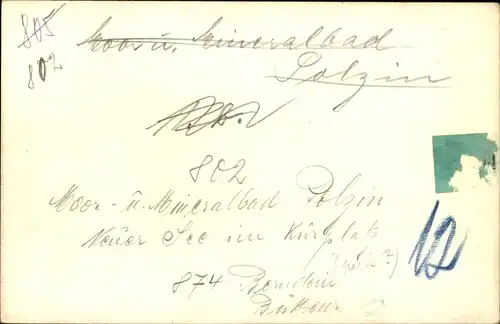 805
802
Moor u. Mineralbad
Polzin
802
Moor- u. Mineralbad Polzin
Neuer See im Kurplatz
874 Bernstein
12